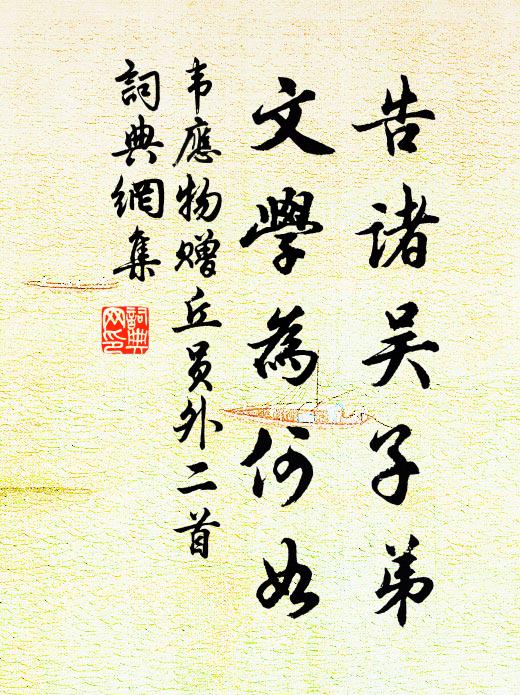 告诸吴子弟
文學為何如
韦應物赠丘员外二首
詞典網集
詞典
网印